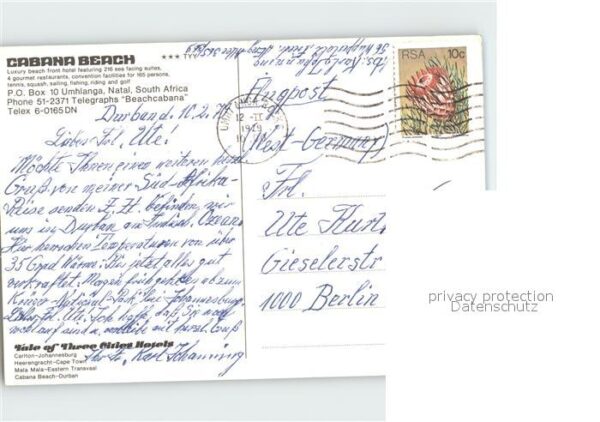 CABANA BEACH
★★★ TYYY
Luxury beach front hotel featuring 216 sea facing suites,
4 gourmet restaurants, convention facilities for 165 persons,
tennis, squash, sailing, fishing, riding and golf
P.O. Box 10 Umhlanga, Natal, South Africa
Phone 51-2371 Telegraphs "Beachcabana"
Telex 6-0165DN
Durban, 10.2.79
Liebes Frl. Ute!
Möchte Ihnen einen weiteren
Gruß von meiner Süd-Afrika-
Reise senden. Z. Zt. befinden wir
uns in Durban am Indisch. Ozean.
Hier herrschen Temperaturen von über
35 Grad Wärme. Bis jetzt alles gut
verkraftet. Morgen früh geht es ab zum
Krüger-National-Park bei Johannesburg.
Liebes Frl. Ute, ich hoffe, daß Sie noch
wohlauf sind u. verbleibe mit herzl. Gruß
Karl Schanning
Tale of Three Cities Hotels
Carlton-Johannesburg
Heerengracht-Cape Town
Mala Mala-Eastern Transvaal
Cabana Beach-Durban
RSA 10c
12 -II-
1979
Flugpost
(West-Germany)
Frl.
Ute Kurt
Gieselerstr
1000 Berlin
privacy protection
Datenschutz